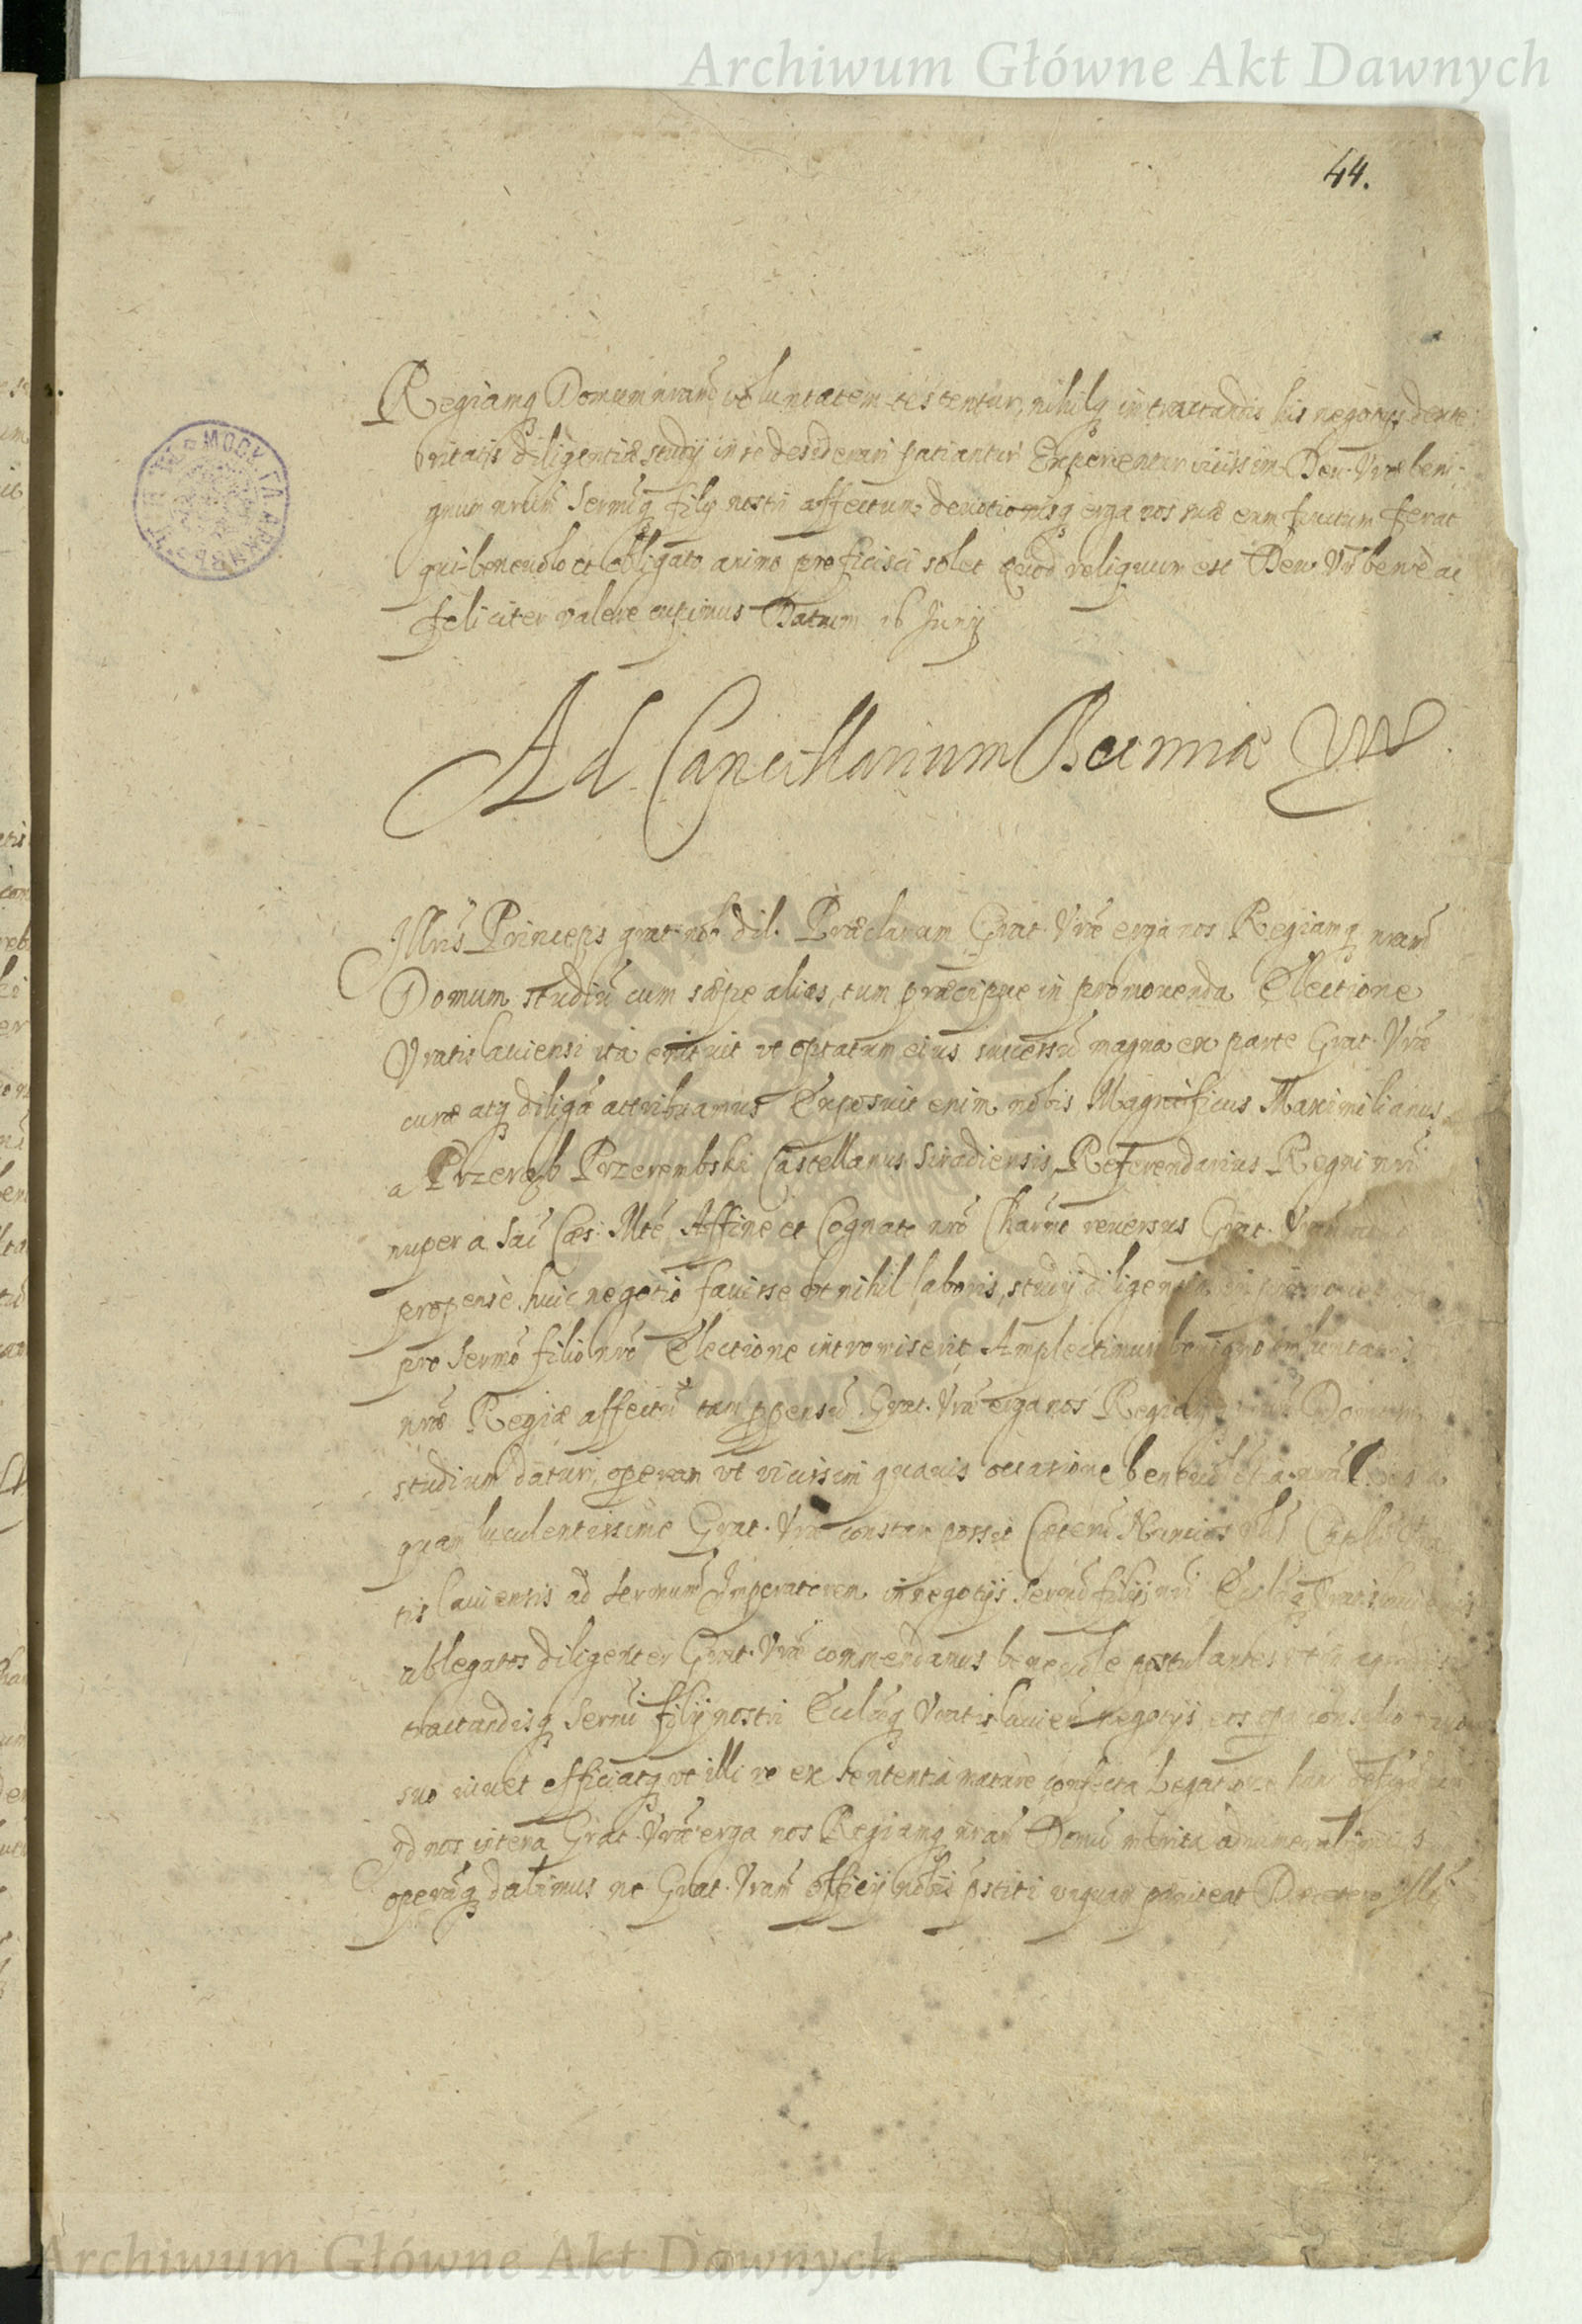 Archiwum Główne Akt Dawnych
44.
Regiamq Domum nram voluntatem testentur, nihilq in tractandis his negotijs dexte
ritatis diligentiæ studij in se desiderari patiantur Experientur vicissim Deu. Vræ beni
gnum nrum Sermiq filij nostri affectum devotionisq erga nos suæ eum fructum ferat
qui benevolo et obligato animo proficisci solet quod reliquum est Deu. Vr bene ac
feliciter valere cupimus Datum 16 Junij
Ad Cancellarium Boemiæ
Illris Princeps grat. nob. dil. Præclarum Grat. Vræ erga nos Regiamq nram
Domum studiu cum sæpe alias, tum præcipue in promovenda Electione
Vratislaviensi ita enituit vt optatum eius successu magna ex parte Grat. Vræ
curæ atq diligæ attribuamus Exposuit enim nobis Magnificus Maximilianus
a Przeremb Przerembski Castellanus Siradiensis, Referendarius Regni nri
nuper a Sac Cæs. Mte Affine et Cognato nro Charmo reversus Grat. Vram
propensè huic negotio favisse vt nihil laboris, studij diligentiæ in
pro Sermo filio nro Electione intromiserit, Amplectimur benigno voluntatis
nræ Regiæ affectu tam ppensu Grat. Vræ erga nos Regiamq nram Domum
studium daturi operam vt vicissim quavis occasione
quam luculentissime Grat. Vræ constare possit Cæteru Nuncios Capli Vra
tislaviensis ad Sermum Imperatorem in negotijs Sermi filij nri Ecclæq Vratislaviensis
ablegatos diligenter Grat. Vræ commendamus benevole postulantes vt in
tractandisq Sermi filij nostri Ecclæq Vratislavien negotijs, eos consilio
suo iuvet efficiatq vt illi re ex sententia maturè confecta Legatione
ad nos Grat. Vræ erga nos Regiamq nram Domu merita adnumerabimus
operamq dabimus ne Grat. Vram officij nobis pstiti vnquam pæniteat De cætero
Archiwum Główne Akt Dawnych